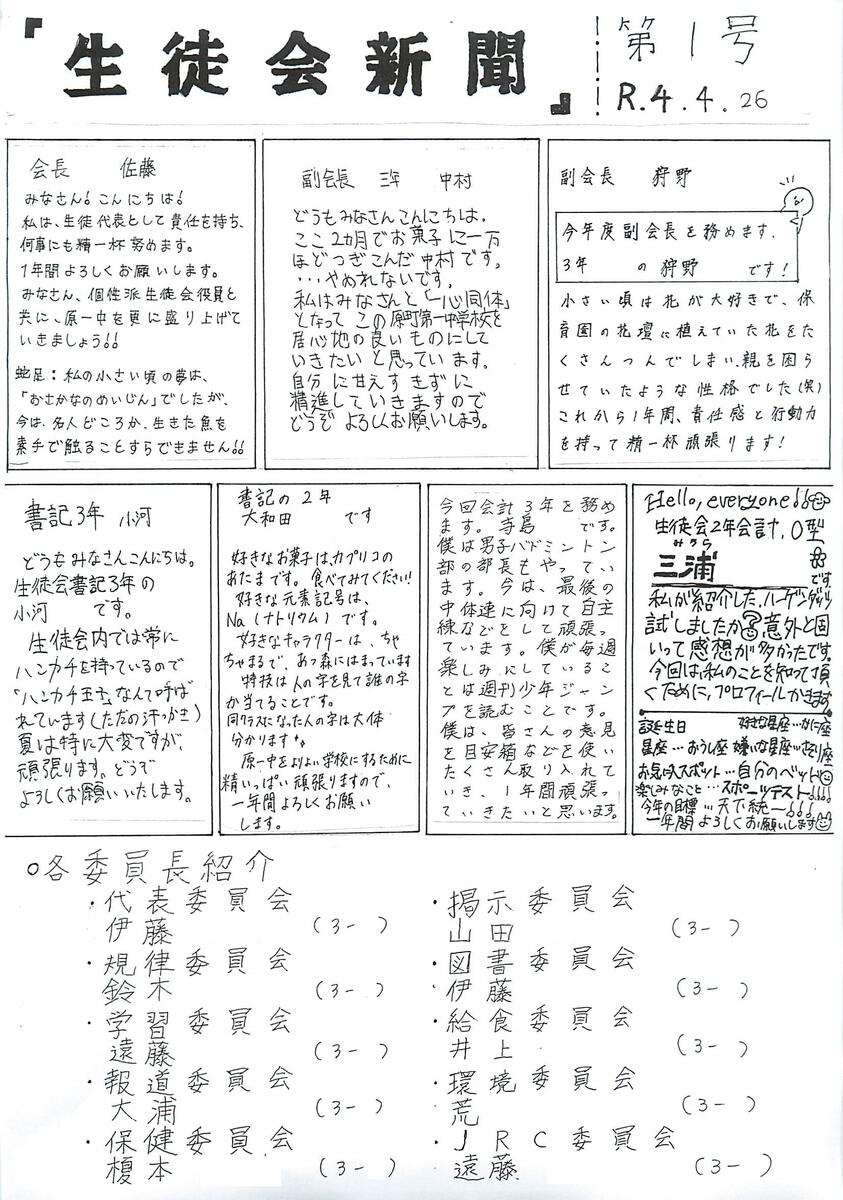 『生徒会新聞』
第1号
R.4.4.26
会長 佐藤
みなさん!こんにちは!
私は、生徒代表として責任を持ち、
何事にも精一杯努めます。
1年間よろしくお願いします。
みなさん、個性派生徒会役員と
共に、原一中を更に盛り上げて
いきましょう!!
蛇足:私の小さい頃の夢は、
「おさかなのめいじん」でしたが、
今は、名人どころか、生きた魚を
素手で触ることすらできません!!
副会長 三年 中村
どうもみなさんこんにちは。
ここ2カ月でお菓子に一万
ほどつぎこんだ中村です。
…やめれないです。
私はみなさんと「一心同体」
となって この原町第一中学校を
居心地の良いものにして
いきたいと思っています。
自分に甘えすぎずに
精進していきますので
どうぞ よろしくお願いします。
副会長 狩野
今年度副会長を務めます.
3年 の狩野 です!
小さい頃は花が大好きで、保
育園の花壇に植えていた花をた
くさんつんでしまい、親を困ら
せていたような性格でした(笑)
これから1年間、責任感と行動力
を持って精一杯頑張ります!
書記3年 小河
どうもみなさんこんにちは。
生徒会書記3年の
小河 です。
生徒会内では常に
ハンカチを持っているので
「ハンカチ王子」なんて呼ば
れています(ただの汗っかき)
夏は特に大変ですが、
頑張ります。どうぞ
よろしくお願いいたします。
書記の2年
大和田 です
好きなお菓子は、カプリコの
あたまです。食べてみてください!
好きな元素記号は、
Na(ナトリウム)です。
好きなキャラクターは、ちゃ
ちゃまるで、あつ森にはまっています
特技は人の字を見て誰の字
か当てることです。
同クラスになった人の字は大体
分かります
原一中をよりよい学校にするために
精いっぱい頑張りますので、
一年間よろしくお願い
します。
今回会計3年を務め
ます。寺島 です。
僕は男子バドミントン
部の部長もやってい
ます。今は、最後の
中体連に向けて自主
練などをして頑張っ
ています。僕が毎週
楽しみにしているこ
とは週刊少年ジャン
プを読むことです。
僕は、皆さんの意見
を目安箱などを使い
たくさん取り入れて
いき、1年間頑張っ
ていきたいと思います。
Hello, everyone!!
生徒会2年会計.O型
みうら
三浦
です
私が紹介した、ハーゲンダッツ
試しましたか?意外と困
いって感想が多かったです。
今回は、私のことを知って頂
くために、プロフィールかきます
誕生日 好きな星座…かに座
星座…おうし座 嫌いな星座…さそり座
お気に入スポット…自分のベット
楽しみなこと…スポーツテスト!!!!
今年の目標…天下統一!!!
一年間よろしくお願いします
○各委員長紹介
・代表委員会
伊藤 (3- )
・規律委員会
鈴木 (3- )
・学習委員会
遠藤 (3- )
・報道委員会
大浦 (3- )
・保健委員会
榎本 (3- )
・掲示委員会
山田 (3- )
・図書委員会
伊藤 (3- )
・給食委員会
井上 (3- )
・環境委員会
荒 (3- )
・JRC委員会
遠藤 (3- )